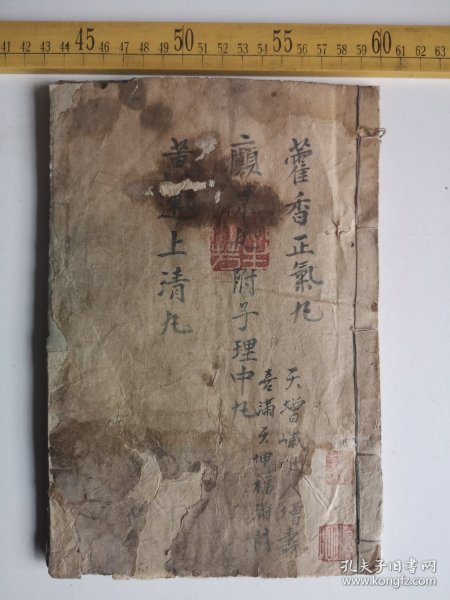 藿香正氣丸
附子理中丸
黃連上清丸
天增歲月人增壽
春滿乾坤福滿門
41 42 43 44 45 46 47 48 49 50 51 52 53 54 55 56 57 58 59 60 61 62 63
孔夫子旧书网
www.kongfz.com